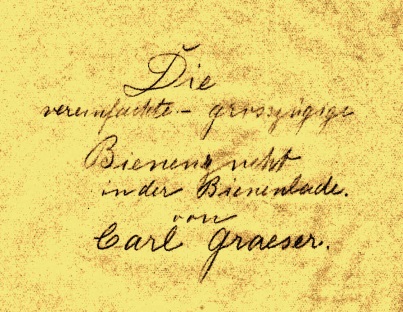 Die
vereinfachte - grosszügige
Bienenzucht
in der Bienenlade.
von
Carl Graeser.